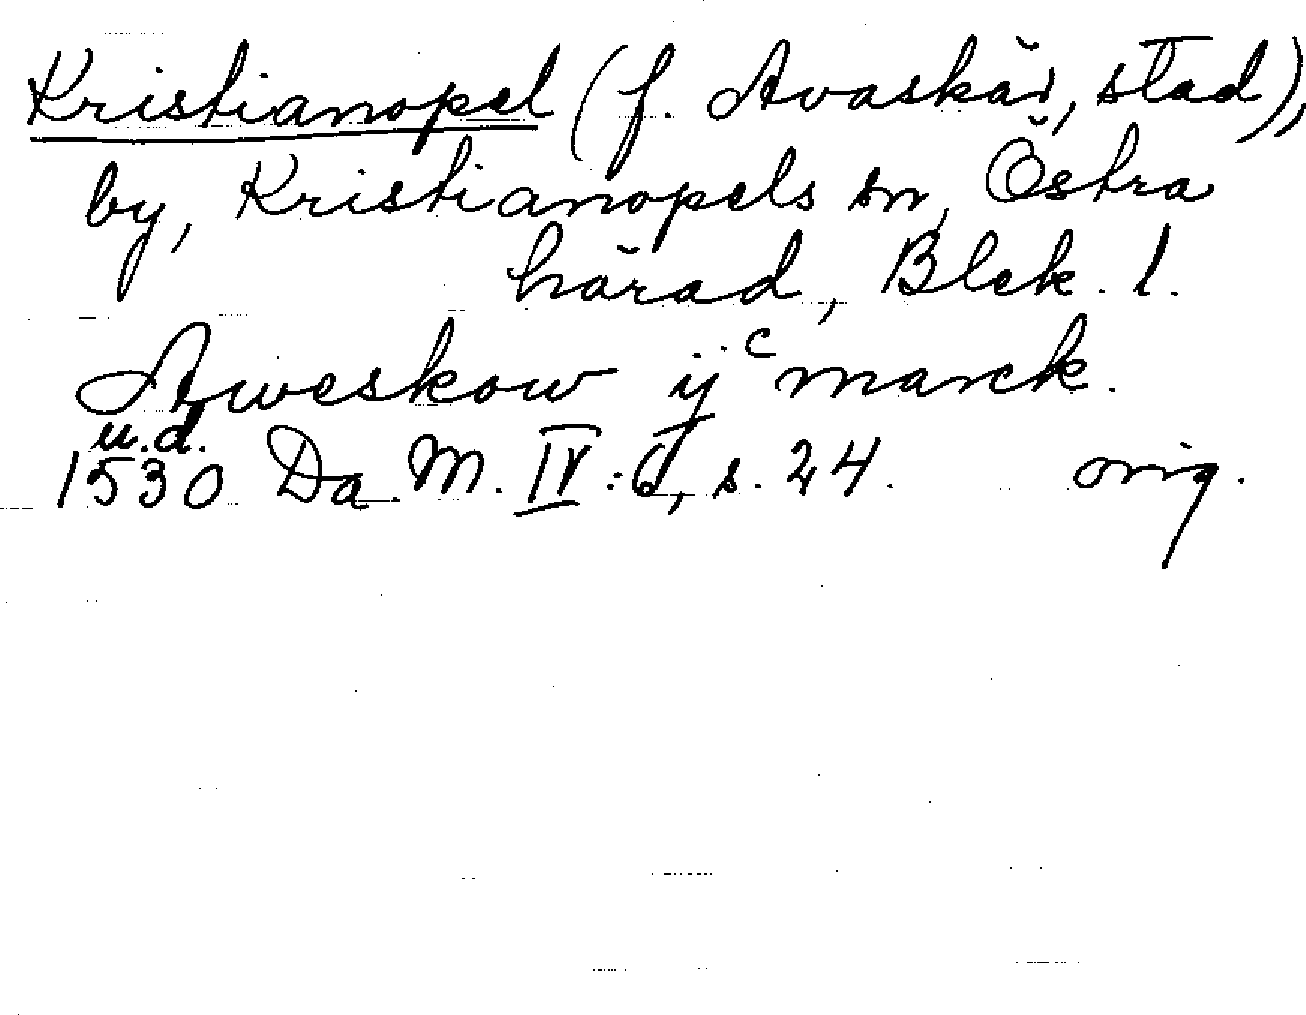 Kristianopel (f. Avaskär, stad),
by, Kristianopels sn, Östra
härad, Blek. l.
Aweskow ij c marck.
u.d.
1530 Da. M. IV:6, s. 24. orig.